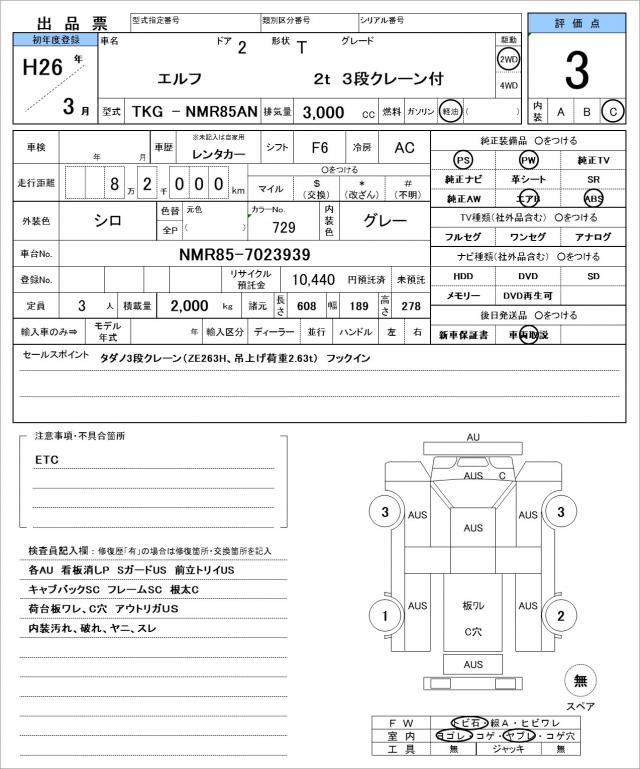 出品票 型式指定番号 類別区分番号 シリアル番号 評価点
初年度登録 車名 ドア 2 形状 T グレード 駆動
H26 年 エルフ 2t 3段クレーン付 2WD 3
4WD
3 月 型式 TKG - NMR85AN 排気量 3,000 cc 燃料 ガソリン 軽油 ( ) 内装 A B C
車検 年 月 車歴 ※未記入は自家用 レンタカー シフト F6 冷房 AC 純正装備品 〇をつける
PS PW 純正TV
走行距離 8 万 2 千 0 0 0 km 〇をつける
マイル $ (交換) * (改ざん) # (不明)
純正ナビ 革シート SR
純正AW エアB ABS
外装色 シロ 色替 元色 カラーNo. 729 内装色 グレー
全P ( )
TV種類(社外品含む) 〇をつける
フルセグ ワンセグ アナログ
車台No. NMR85-7023939 ナビ種類(社外品含む) 〇をつける
登録No. リサイクル預託金 10,440 円預託済 未預託 HDD DVD SD
定員 3 人 積載量 2,000 kg 諸元 長さ 608 幅 189 高さ 278 メモリー DVD再生可
後日発送品 〇をつける
輸入車のみ⇒ モデル年式 年 輸入区分 ディーラー 並行 ハンドル 左 右 新車保証書 車両取説
セールスポイント タダノ3段クレーン(ZE263H、吊上げ荷重2.63t) フックイン
注意事項・不具合箇所
ETC
検査員記入欄:修復歴「有」の場合は修復箇所・交換箇所を記入
各AU 看板消しP SガードUS 前立トリイUS
キャブバックSC フレームSC 根太C
荷台板ワレ、C穴 アウトリガUS
内装汚れ、破れ、ヤニ、スレ
AU
AUS C
3 AUS AUS 3
AUS
1 AUS 板ワレ AUS 2
C穴
AUS
無
スペア
FW トビ石・線A・ヒビワレ
室内 ヨゴレ・コゲ・ヤブレ・コゲ穴
工具 無 ジャッキ 無